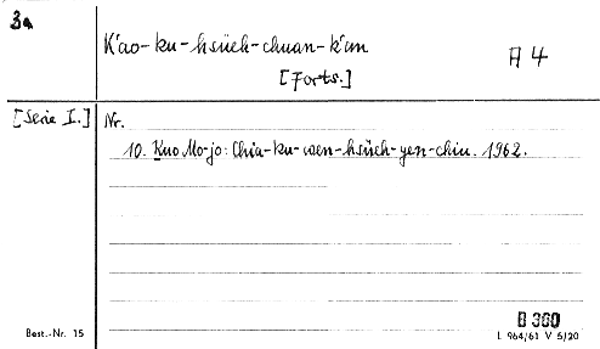 3a
K'ao-ku-hsüeh-chuan-k'an
[Forts.]
A 4
[Serie I.]
Nr.
10. Kuo Mo-jo: Chia-ku-wen-hsüeh-yen-chiu. 1962.
Best.-Nr. 15
B 360
L 964/61 V 5/20